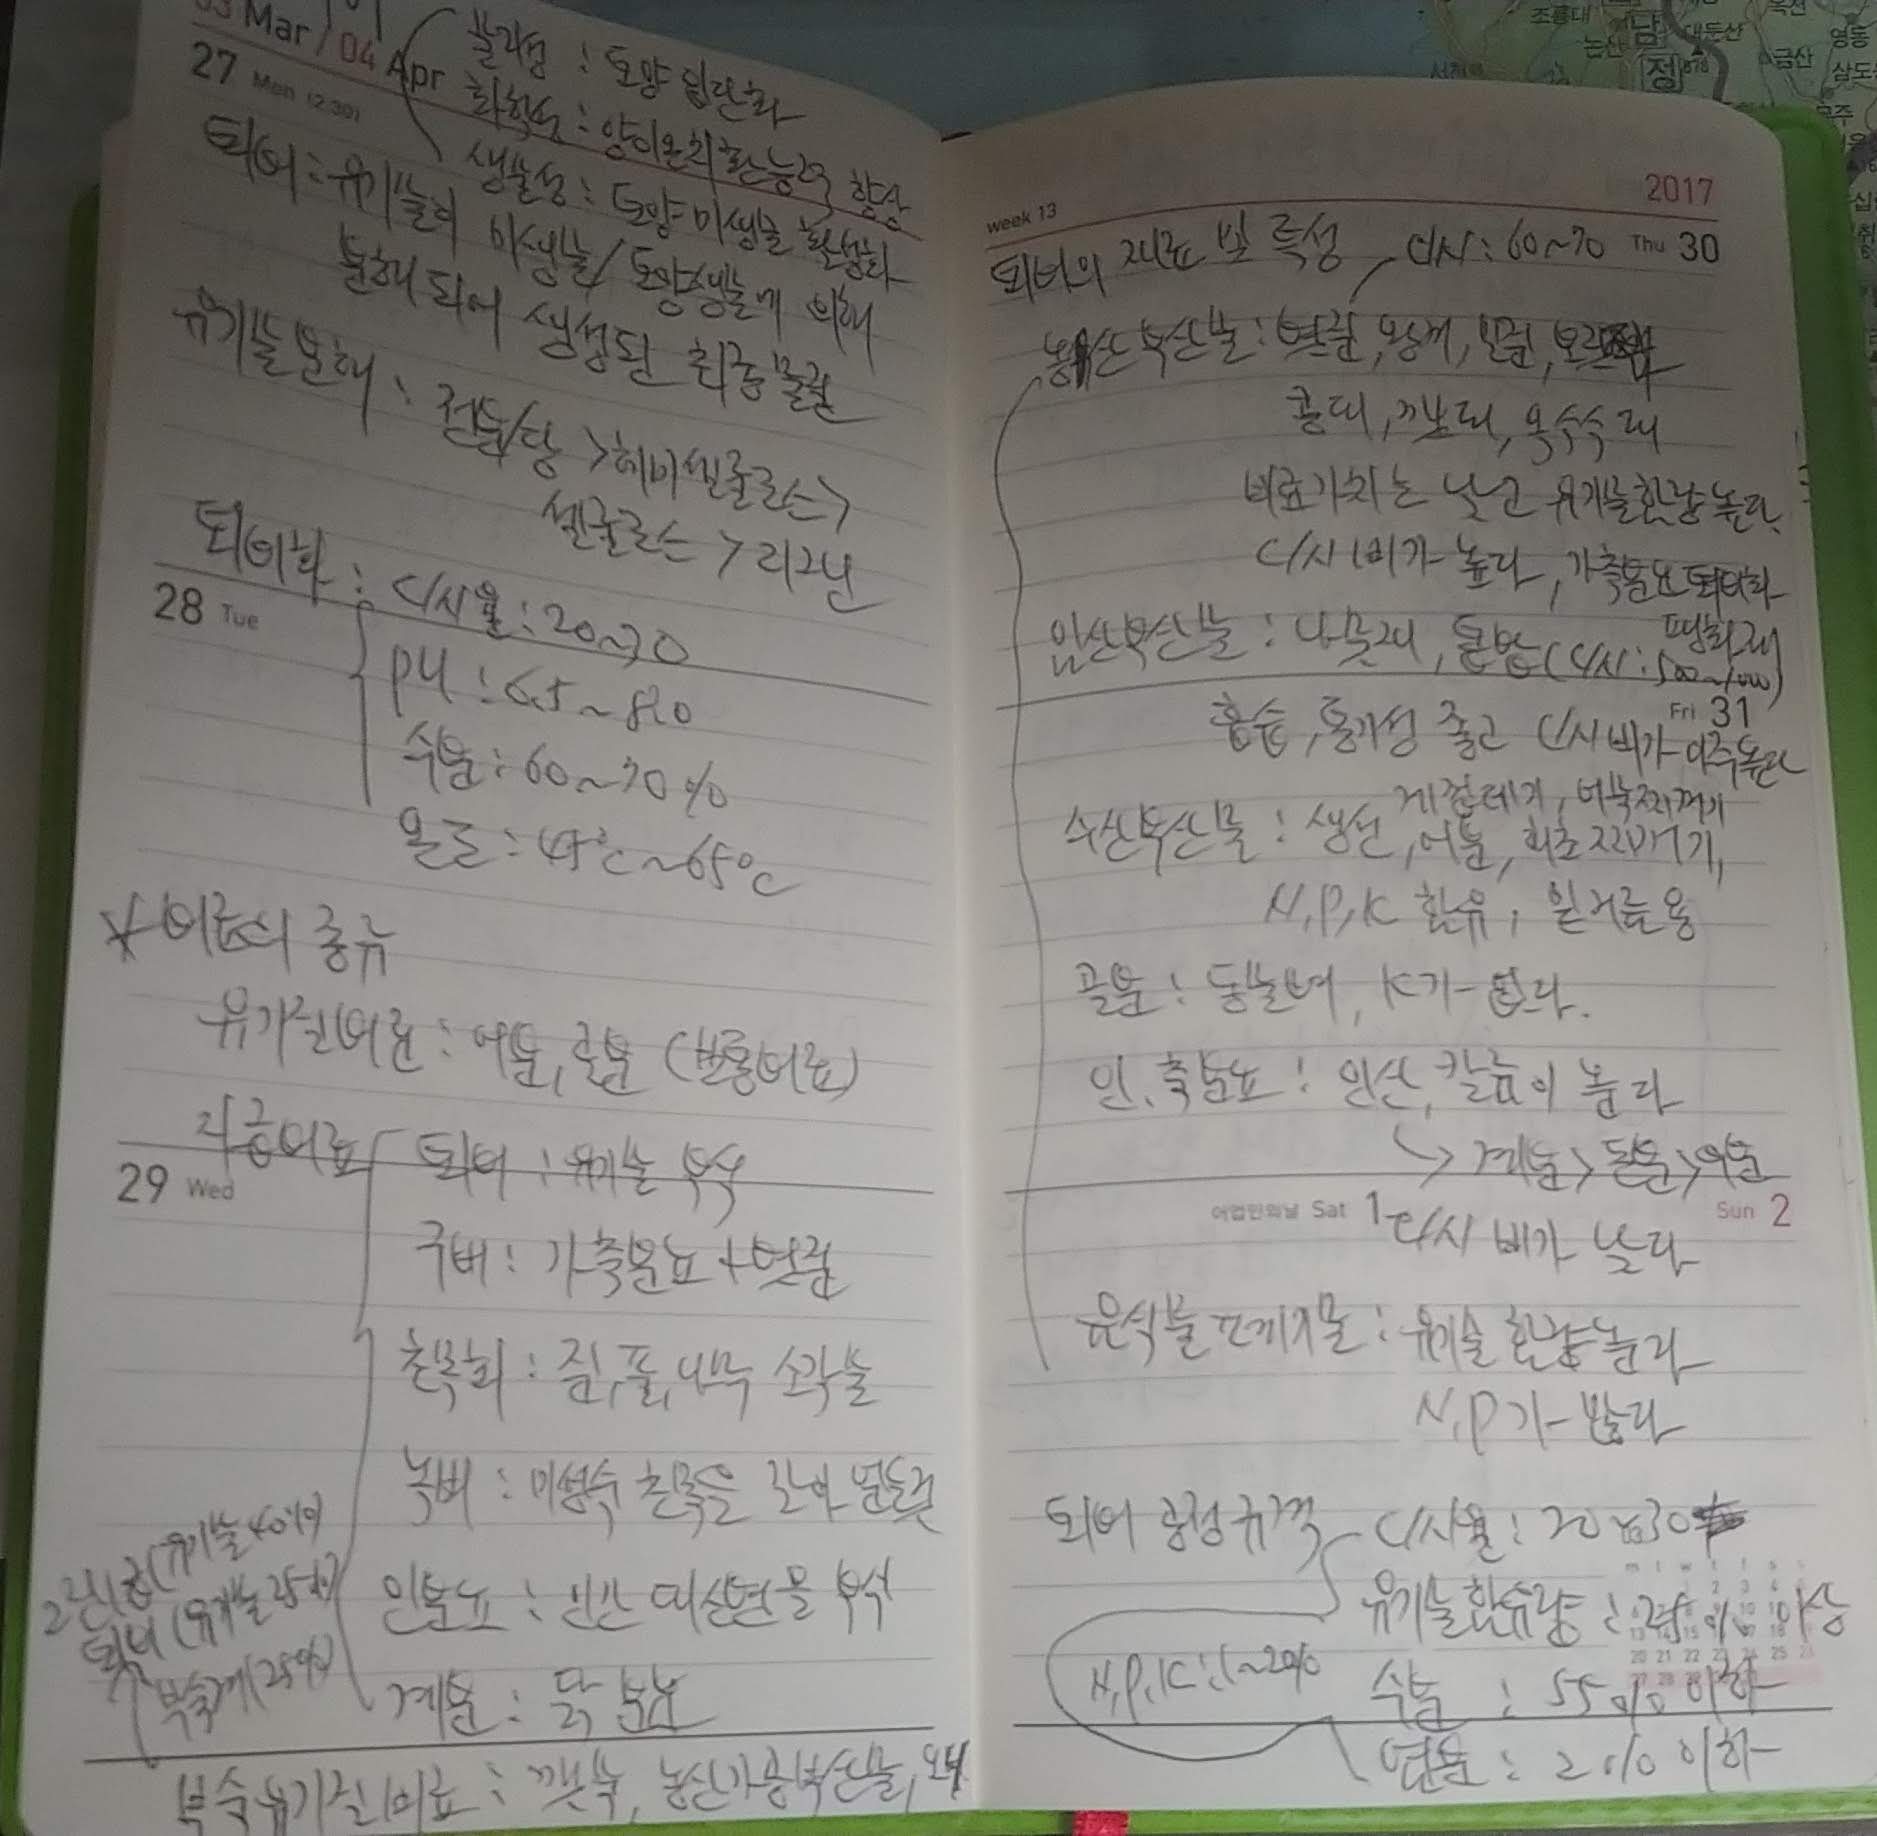 03 Mar / 04 Apr
물리성 : 토양 입단화
화학성 : 양이온치환능력 향상
27 Mon (2.30)
생물성 : 토양미생물 활성화
퇴비 : 유기물이 미생물/토양생물에 의해
분해되어 생성된 최종물질
유기물분해 : 전분/당 > 헤미셀룰로스 >
셀룰로스 > 리그닌
퇴비화 : C/N율 : 20~30
28 Tue
PH : 6.5~8.0
수분 : 60~70%
온도 : 45℃~65℃
* 비료의 종류
유기질비료 : 어분, 골분 (보통비료)
자급비료
퇴비 : 유기물 부숙
29 Wed
구비 : 가축분뇨 + 볏짚
초목회 : 짚, 풀, 나무 소각물
녹비 : 미성숙 초목을
인분뇨 : 인간 부숙
계분 : 닭 분뇨
(유기물 40%)
퇴비 (유기물 25%)
부숙겨 (25%)
부숙유기질비료 : 깻묵, 농산가공부산물,
week 13
2017
퇴비의 재료 및 특성
C/N : 60~70
Thu 30
농산부산물 : 볏짚, 왕겨, 밀짚,
콩대, 깨대, 옥수수대
비료가치는 낮고 유기물함량 높다
C/N비가 높다, 가축분뇨 퇴비화
임산부산물 : 나뭇재, 톱밥 (C/N : 500~1000)
Fri 31
흡습, 통기성 좋고 C/N비가 아주높다
게껍데기,
수산부산물 : 생선, 어분, 해초찌꺼기,
N, P, K 함유, 밑거름용
골분 : 동물뼈, K가 없다.
인, 축분뇨 : 인산, 칼륨이 높다
→ 계분 > 돈분 > 우분
어업인의날 Sat 1
Sun 2
C/N비가 낮다
음식물쓰레기 : 유기물 함량높다
N, P가 많다
퇴비 공정규격
C/N율 : 20~30
유기물함유량 : 25% 이상
N, P, K : 1~2%
수분 : 55% 이하
염분 : 2% 이하